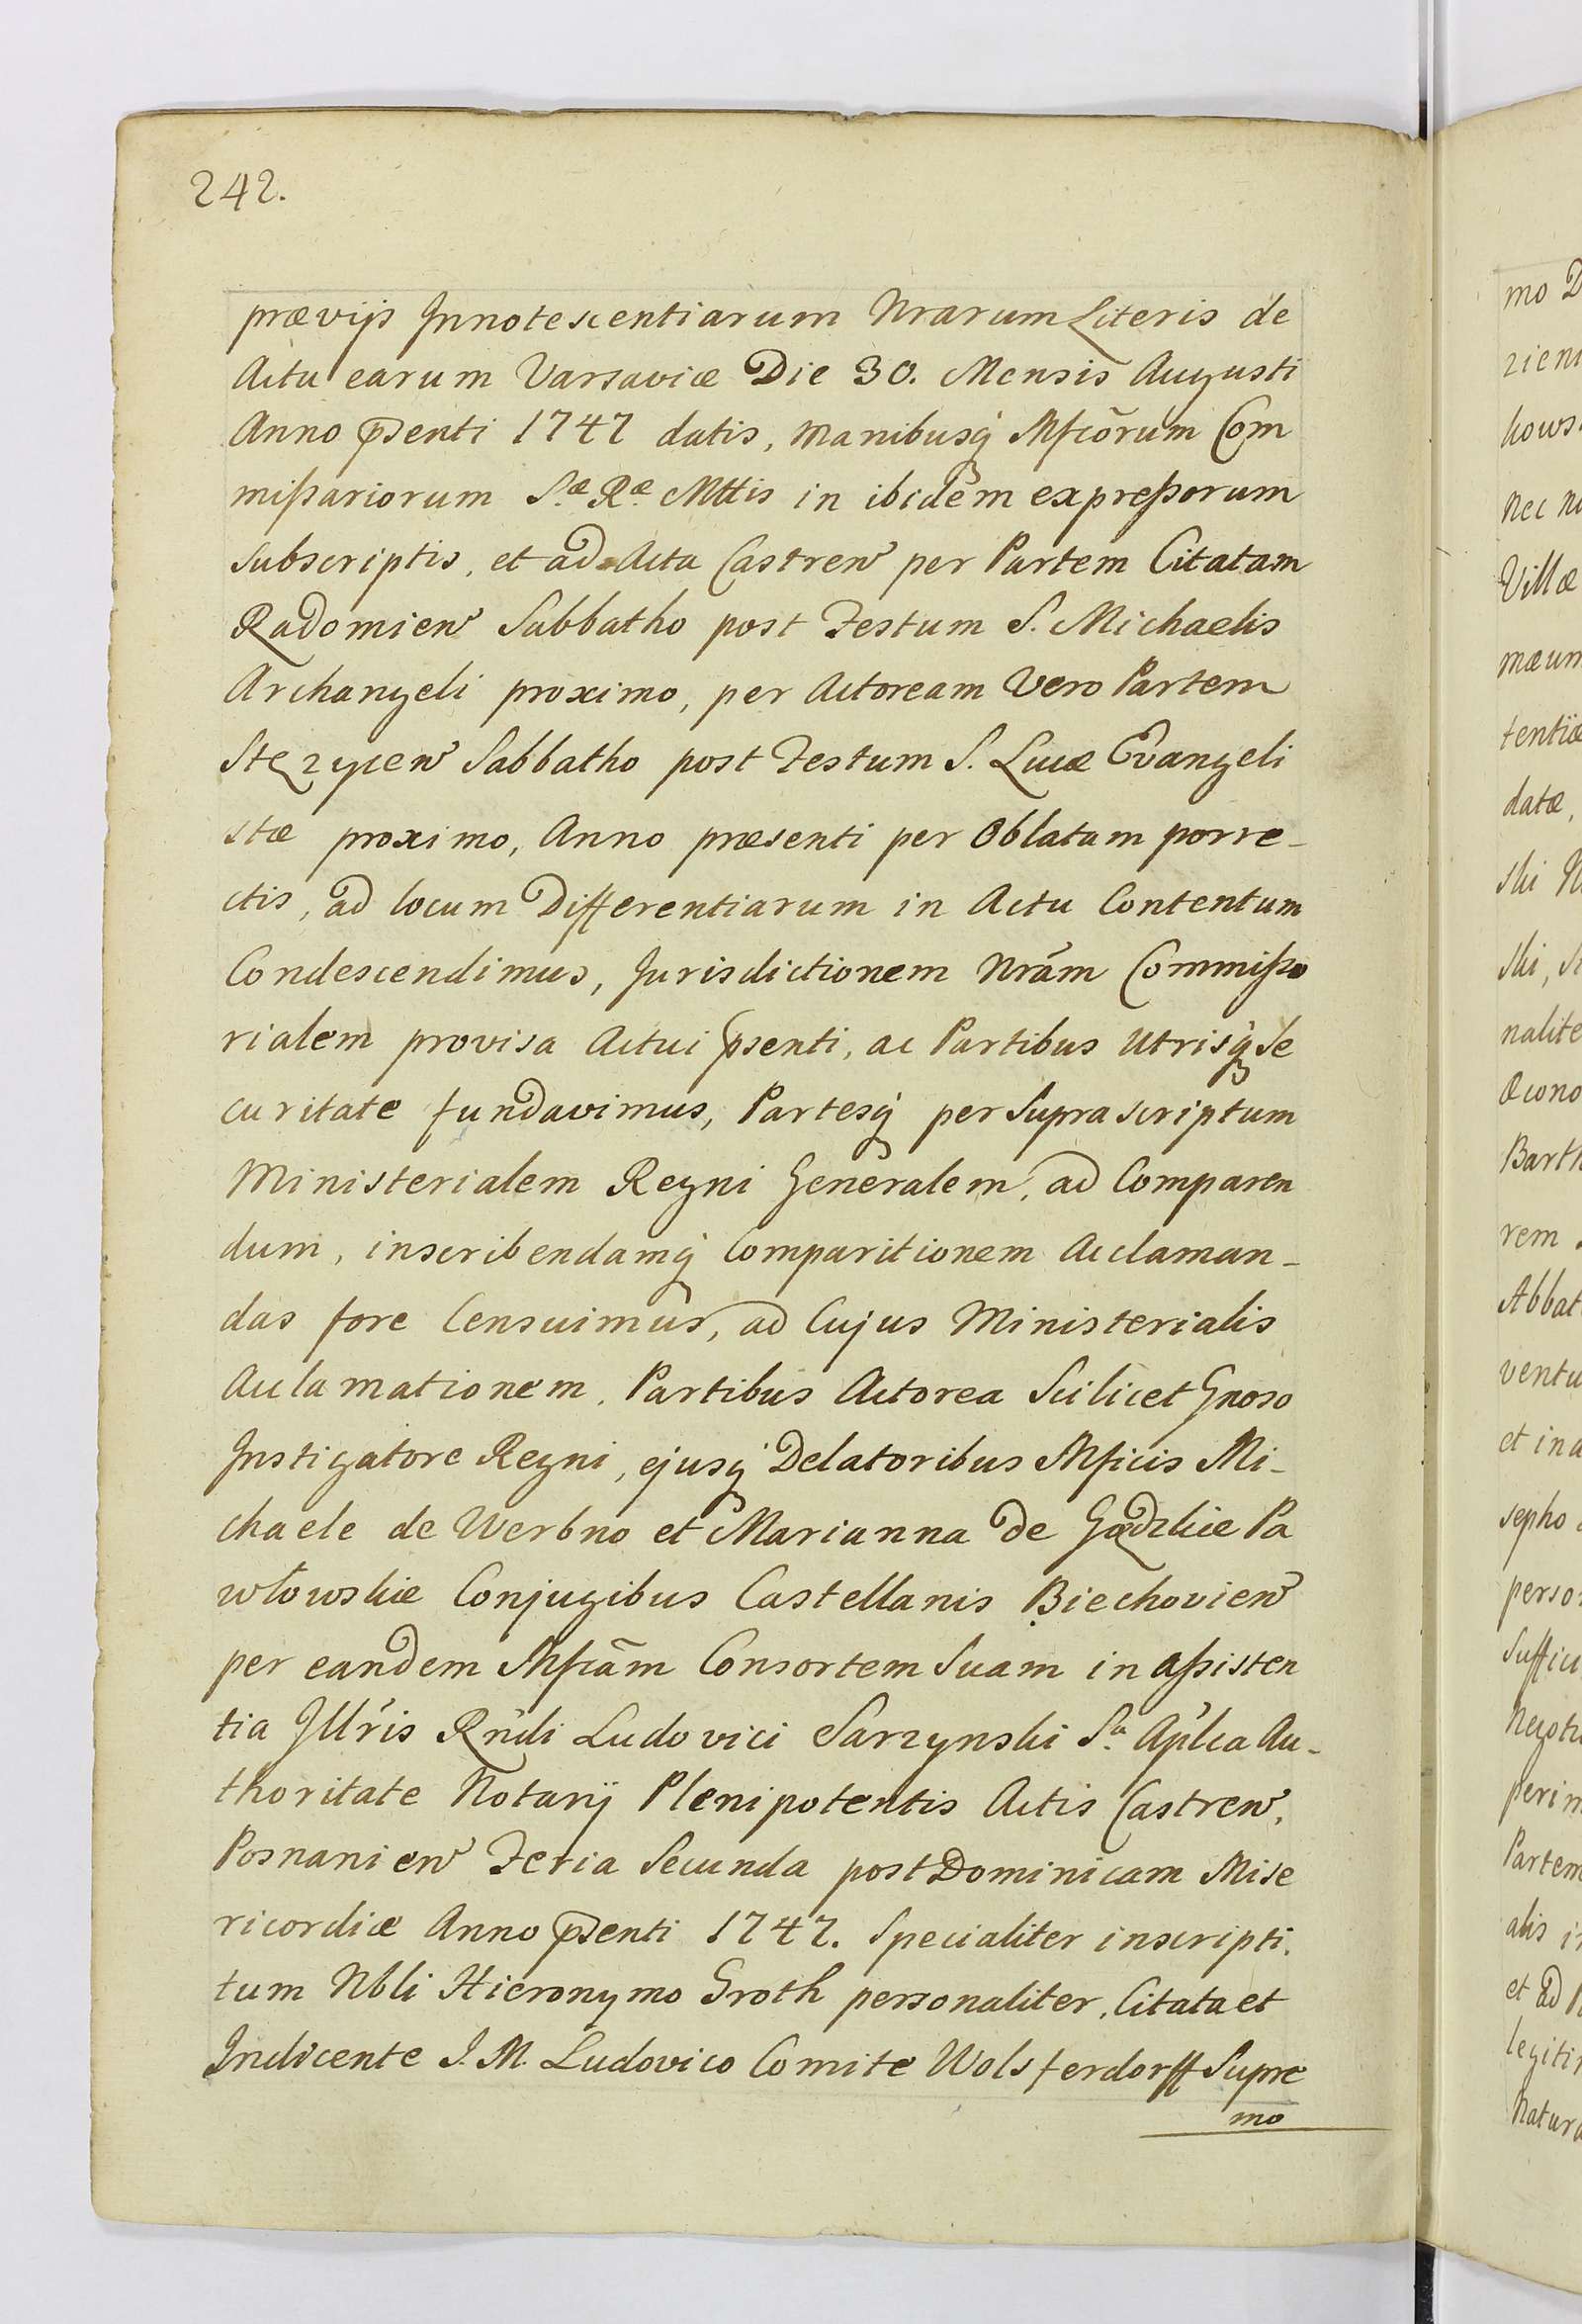 242.
prævijs Innotescentiarum Nrarum Literis de
Actu earum Varsaviæ Die 30. Mensis Augusti
Anno p̄senti 1747 datis, Manibusq̨ Mfcõrum Com
mißariorum S.æ R.æ Mttis in ibidem expreßorum
subscriptis, et ad Acta Castren̄ per Partem Citatam
Radomien̄ Sabbatho post Festum S. Michaelis
Archangeli proximo, per Actoream Vero Partem
Stęzycen̄ Sabbatho post Festum S. Lucæ Evangeli
stæ proximo, Anno præsenti per Oblatam porre-
ctis, ad locum Differentiarum in Actu Contentum
Condescendimus, Jurisdictionem Nrām Commißo
rialem provisa Actui p̄senti, ac Partibus Utrisq̨ Se
curitate fundavimus, Partesq̨ per Suprascriptum
Ministerialem Regni Generalem, ad Comparen
dum, inscribendamq̨ Comparitionem Acclaman-
das fore Censuimus, ad Cujus Ministerialis
Acclamationem, Partibus Actorea Scilicet Gnoso
Instigatore Regni, ejusq̨ Delatoribus Mficis Mi-
chaele de Werbno et Marianna de Gądzkie Pa
włowskie Conjugibus Castellanis Biechovien̄
per eandem Mfcām Consortem Suam in aßisten
tia Jllr̄is Rn̄di Ludovici Sarzynski S.a Ap̄lca Au-
thoritate Notarij Plenipotentis Actis Castren̄.
Posnanien̄ Feria Secunda post Dominicam Mise
ricordiæ Anno p̄senti 1747. Specialiter inscripti.
tum Nbli Hieronymo Groth personaliter, Citata et
Indicente I. M. Ludovico Comite Wolsferdorff Supre
mo
mo D
zien
kows
Nec n
Villæ
mæum
tentiæ
datæ,
ski N
ski, S
nalite
Œcono
Barth
rem
Abbat
ventu
et in a
sepho
perso
Suffici
Negoti
perim
Partem
alis i
et ad P
legiti
Natura